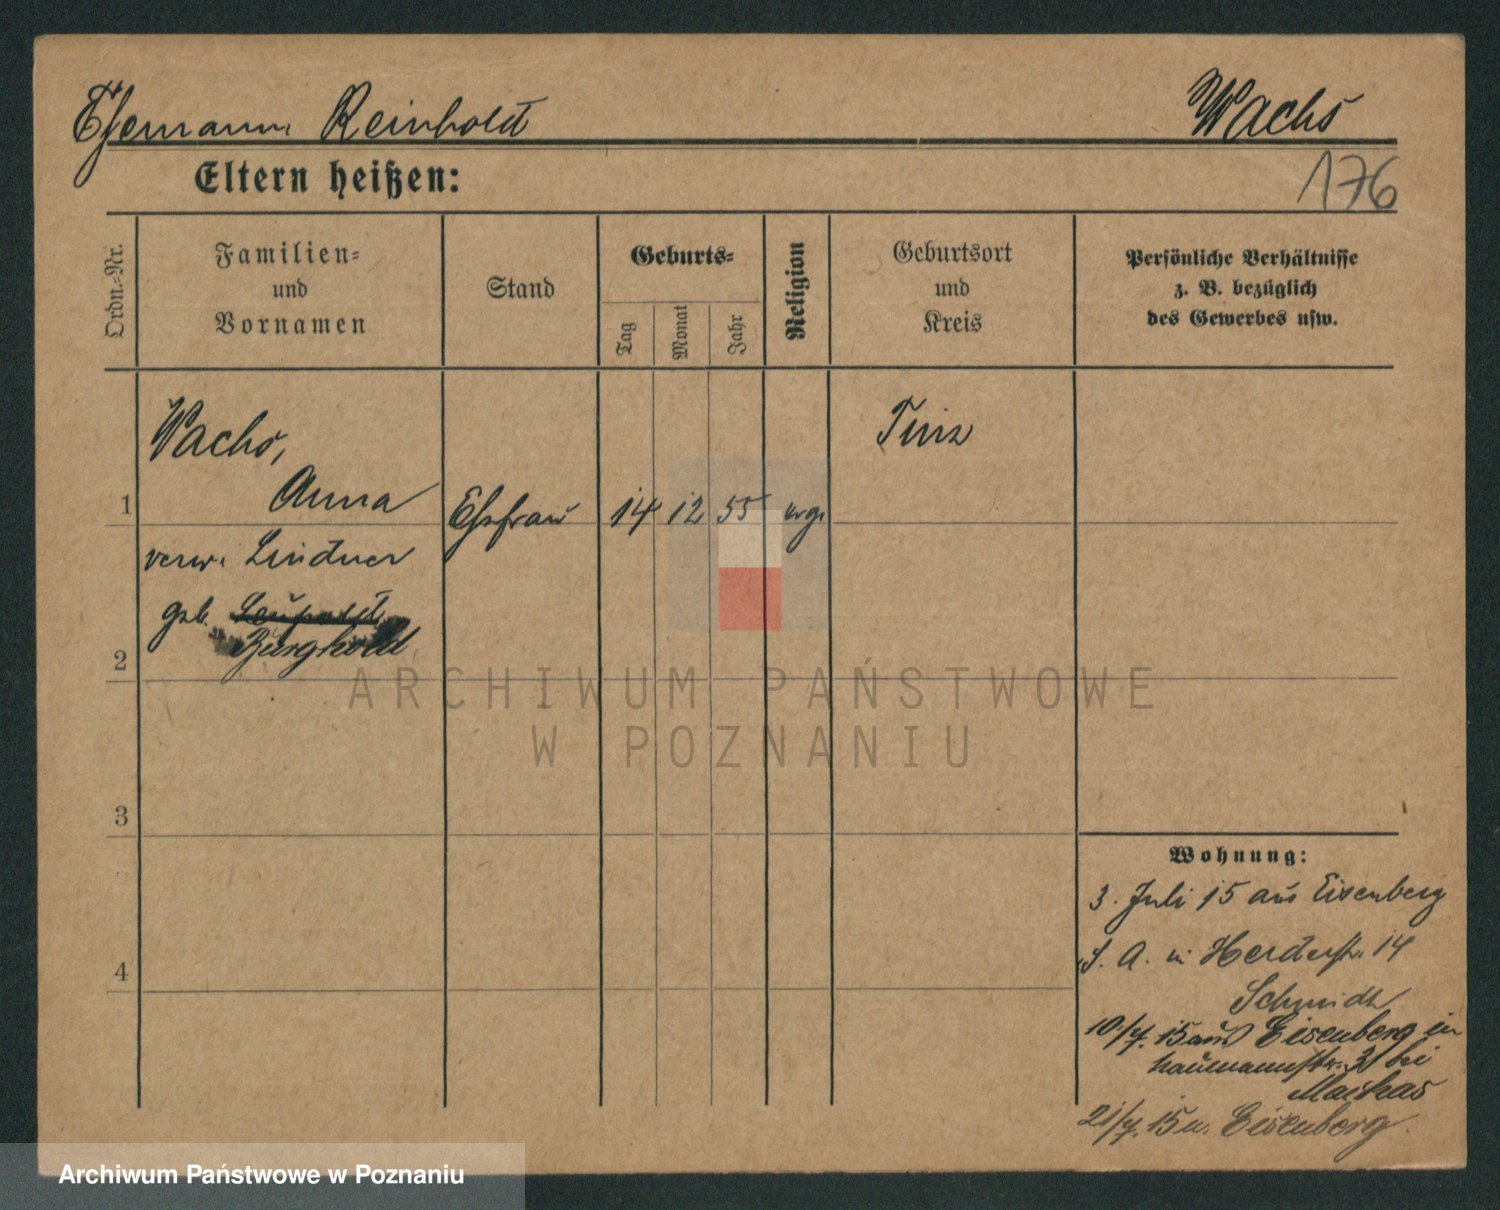 Ehemann Reinhold Wachs
Eltern heißen:
176
Ordn.-Nr.
Familien-
und
Vornamen
Stand
Geburts-
Tag
Monat
Jahr
Religion
Geburtsort
und
Kreis
Persönliche Verhältnisse
z. B. bezüglich
des Gewerbes usw.
Wachs, Tinz
1 Anna Ehefrau 14 12 55 evgl
verw. Lindner
geb. Leupold
2 Burghold
ARCHIWUM PAŃSTWOWE
W POZNANIU
3
Wohnung:
3. Juli 15 aus Eisenberg
S. A. in Herderstr. 14
4
Schmidt
10/7. 15 aus Eisenberg in
Naumannstr. 3 bei
21/7. 15 n. Eisenberg.
Archiwum Państwowe w Poznaniu